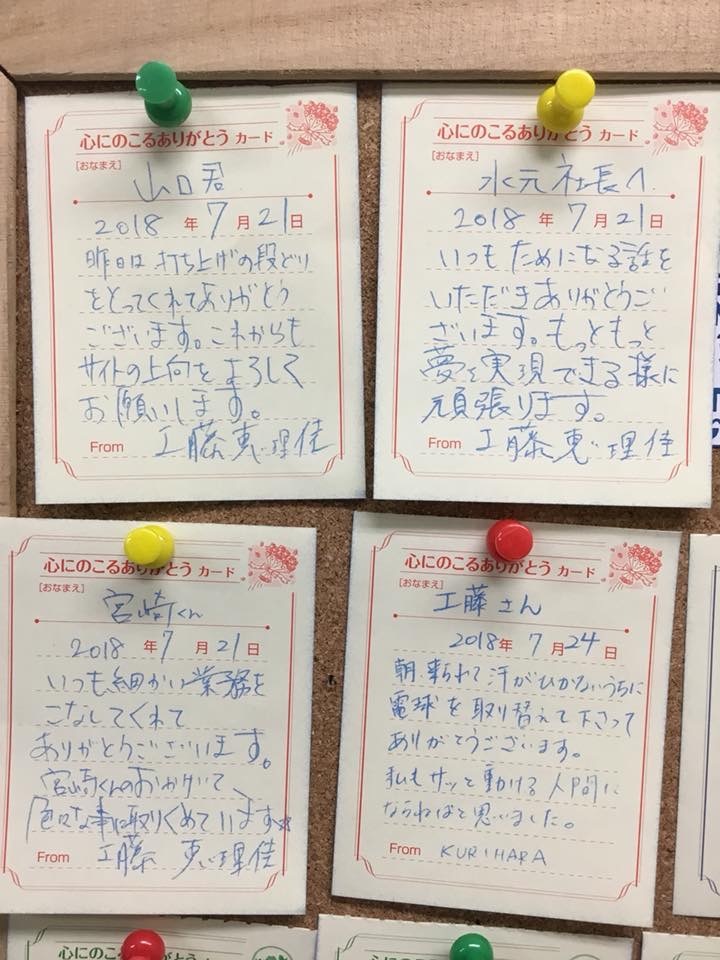 心にのこるありがとう カード
[おなまえ]
山口君
2018 年 7 月 21 日
昨日は打ち上げの段どり
をとってくれてありがとう
ございます。これからも
サイトの上向をよろしくて
お願いします。
From 工藤恵理佳
心にのこるありがとう カード
[おなまえ]
水元社長へ
2018 年 7 月 21 日
いつもためになる話を
いただきありがとうご
ざいます。もっともっと
夢を実現できる様に
頑張ります。
From 工藤恵理佳
心にのこるありがとう カード
[おなまえ]
宮崎くん
2018 年 7 月 21 日
いつも細かい業務を
こなしてくれて
ありがとうございます。
宮崎くんのおかげで、
色々な事に取りくめています☆
From 工藤 恵理佳
心にのこるありがとう カード
[おなまえ]
工藤さん
2018年 7 月 24 日
朝、来られて汗がひかないうちに
電球を取り替えて下さって
ありがとうございます。
私もサッと動ける人間に
ならねばと思いました。
From KURIHARA
心にのこるありがとう カード
心にのこるありがとう カード